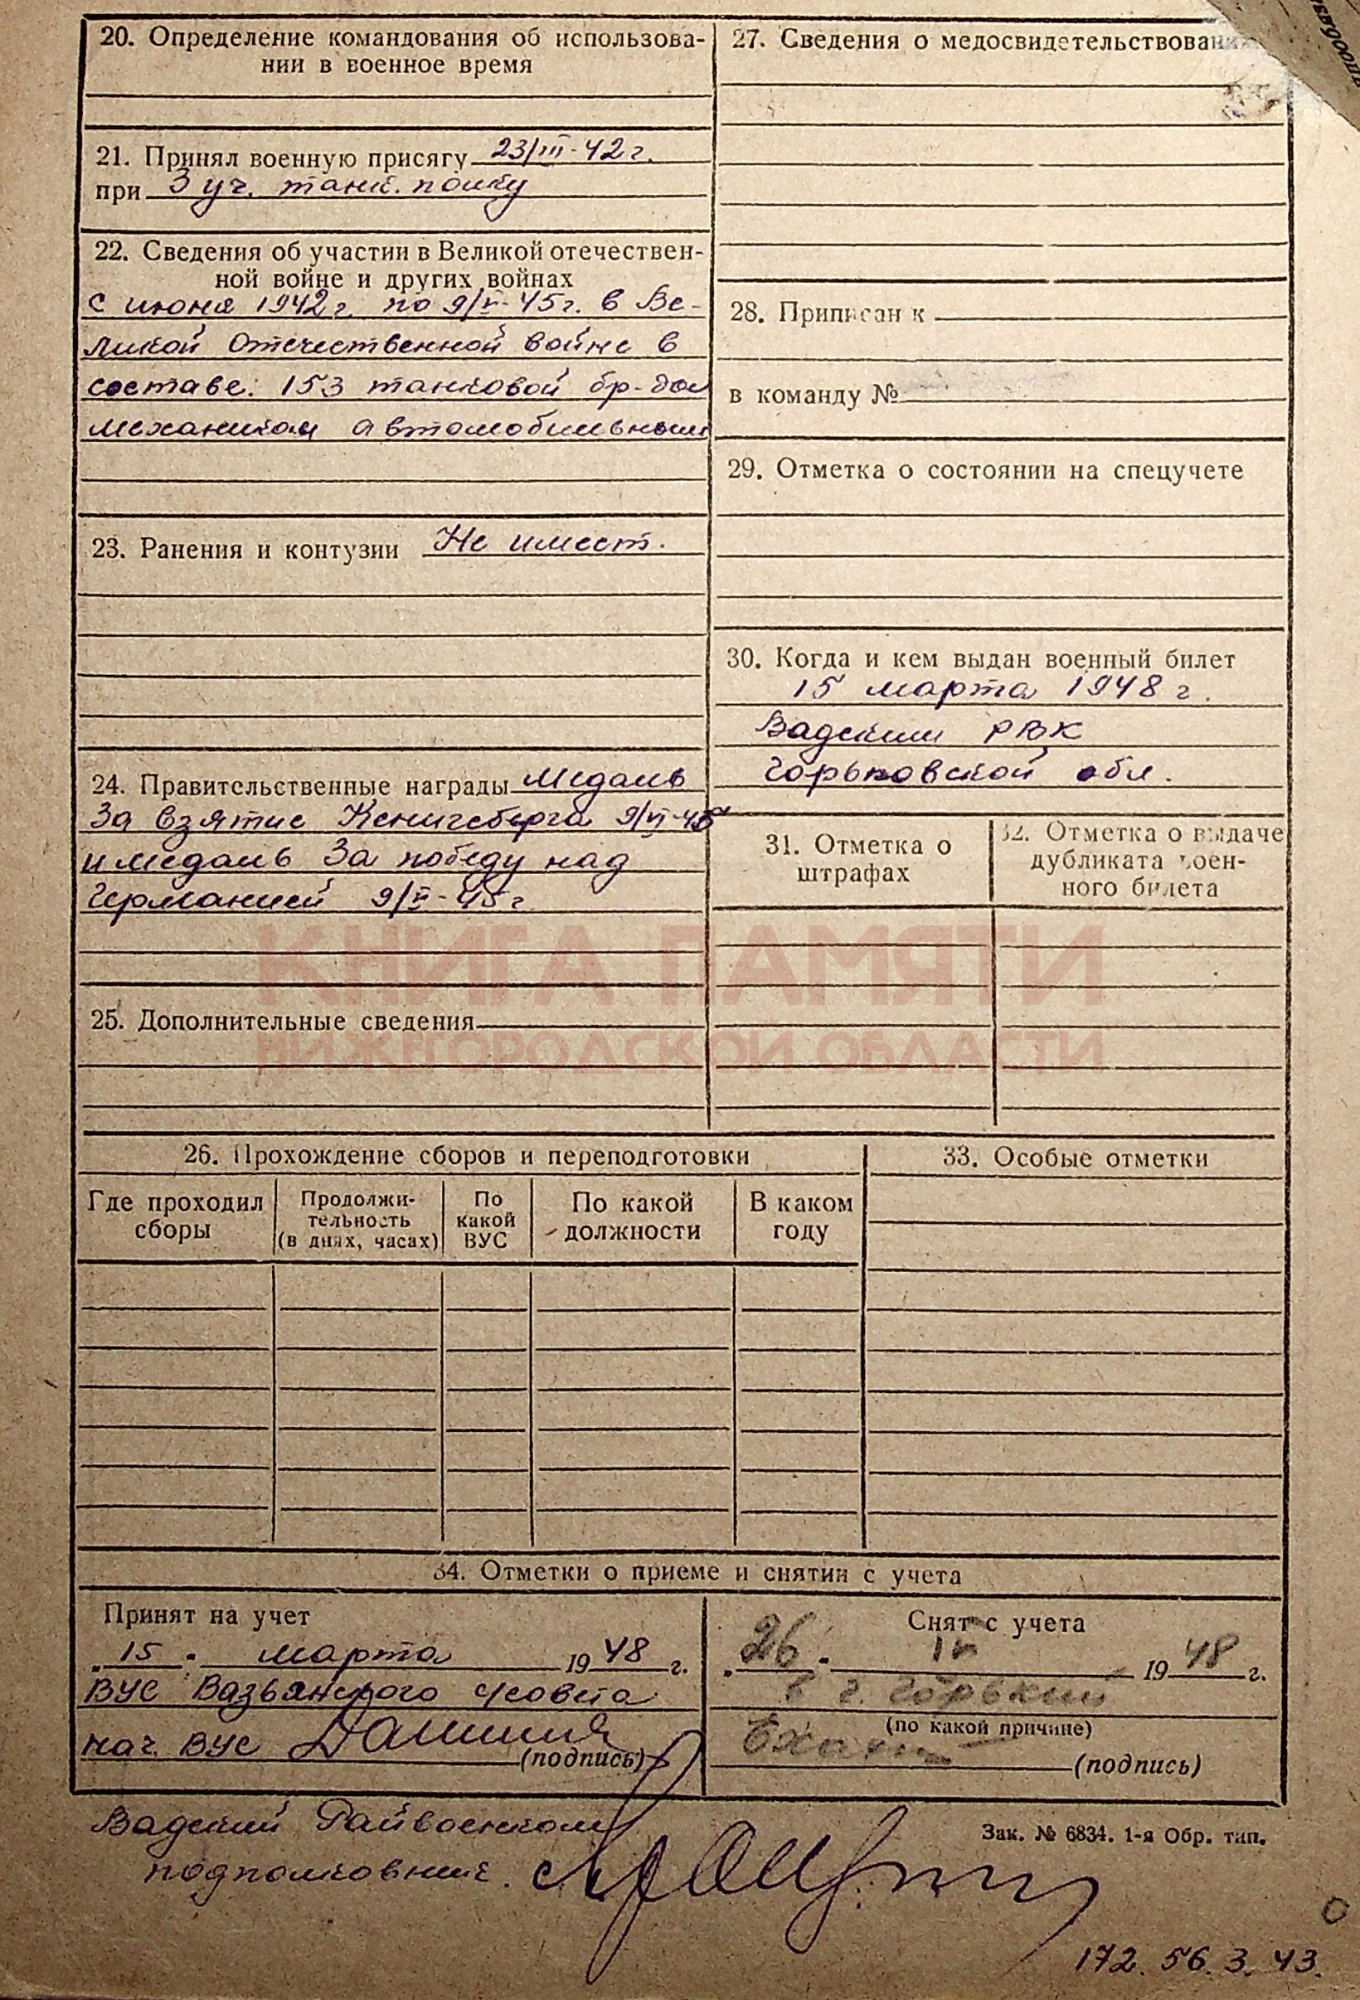 20. Определение командования об использова-
нии в военное время
21. Принял военную присягу 23/III-42 г.
при 3 уч. танк. полку
22. Сведения об участии в Великой отечествен-
ной войне и других войнах
с июня 1942 г. по 9/V-45 г. в Ве-
ликой Отечественной войне в
составе: 153 танковой бр-ды
механиком автомобильным
23. Ранения и контузии Не имеет.
24. Правительственные награды Медаль
За взятие Кенигсберга 9/VI-45
и медаль За победу над
Германией 9/V-45 г.
25. Дополнительные сведения
27. Сведения о медосвидетельствовании
28. Приписан к
в команду №
29. Отметка о состоянии на спецучете
30. Когда и кем выдан военный билет
15 марта 1948 г.
Вадским РВК
Горьковской обл.
31. Отметка о
штрафах
32. Отметка о выдаче
дубликата воен-
ного билета
КНИГА ПАМЯТИ
НИЖЕГОРОДСКОЙ ОБЛАСТИ
26. Прохождение сборов и переподготовки
Где проходил
сборы
Продолжи-
тельность
(в днях, часах)
По
какой
ВУС
По какой
должности
В каком
году
33. Особые отметки
34. Отметки о приеме и снятии с учета
Принят на учет
"15" марта 1948 г.
ВУС Вазьянского с/совета
нач. ВУС
(подпись)
Снят с учета
"26" 1948 г.
в г. Горький
(по какой причине)
(подпись)
Вадский Райвоенком
подполковник
Зак. № 6834. 1-я Обр. тип.
172. 56. 3. 43.